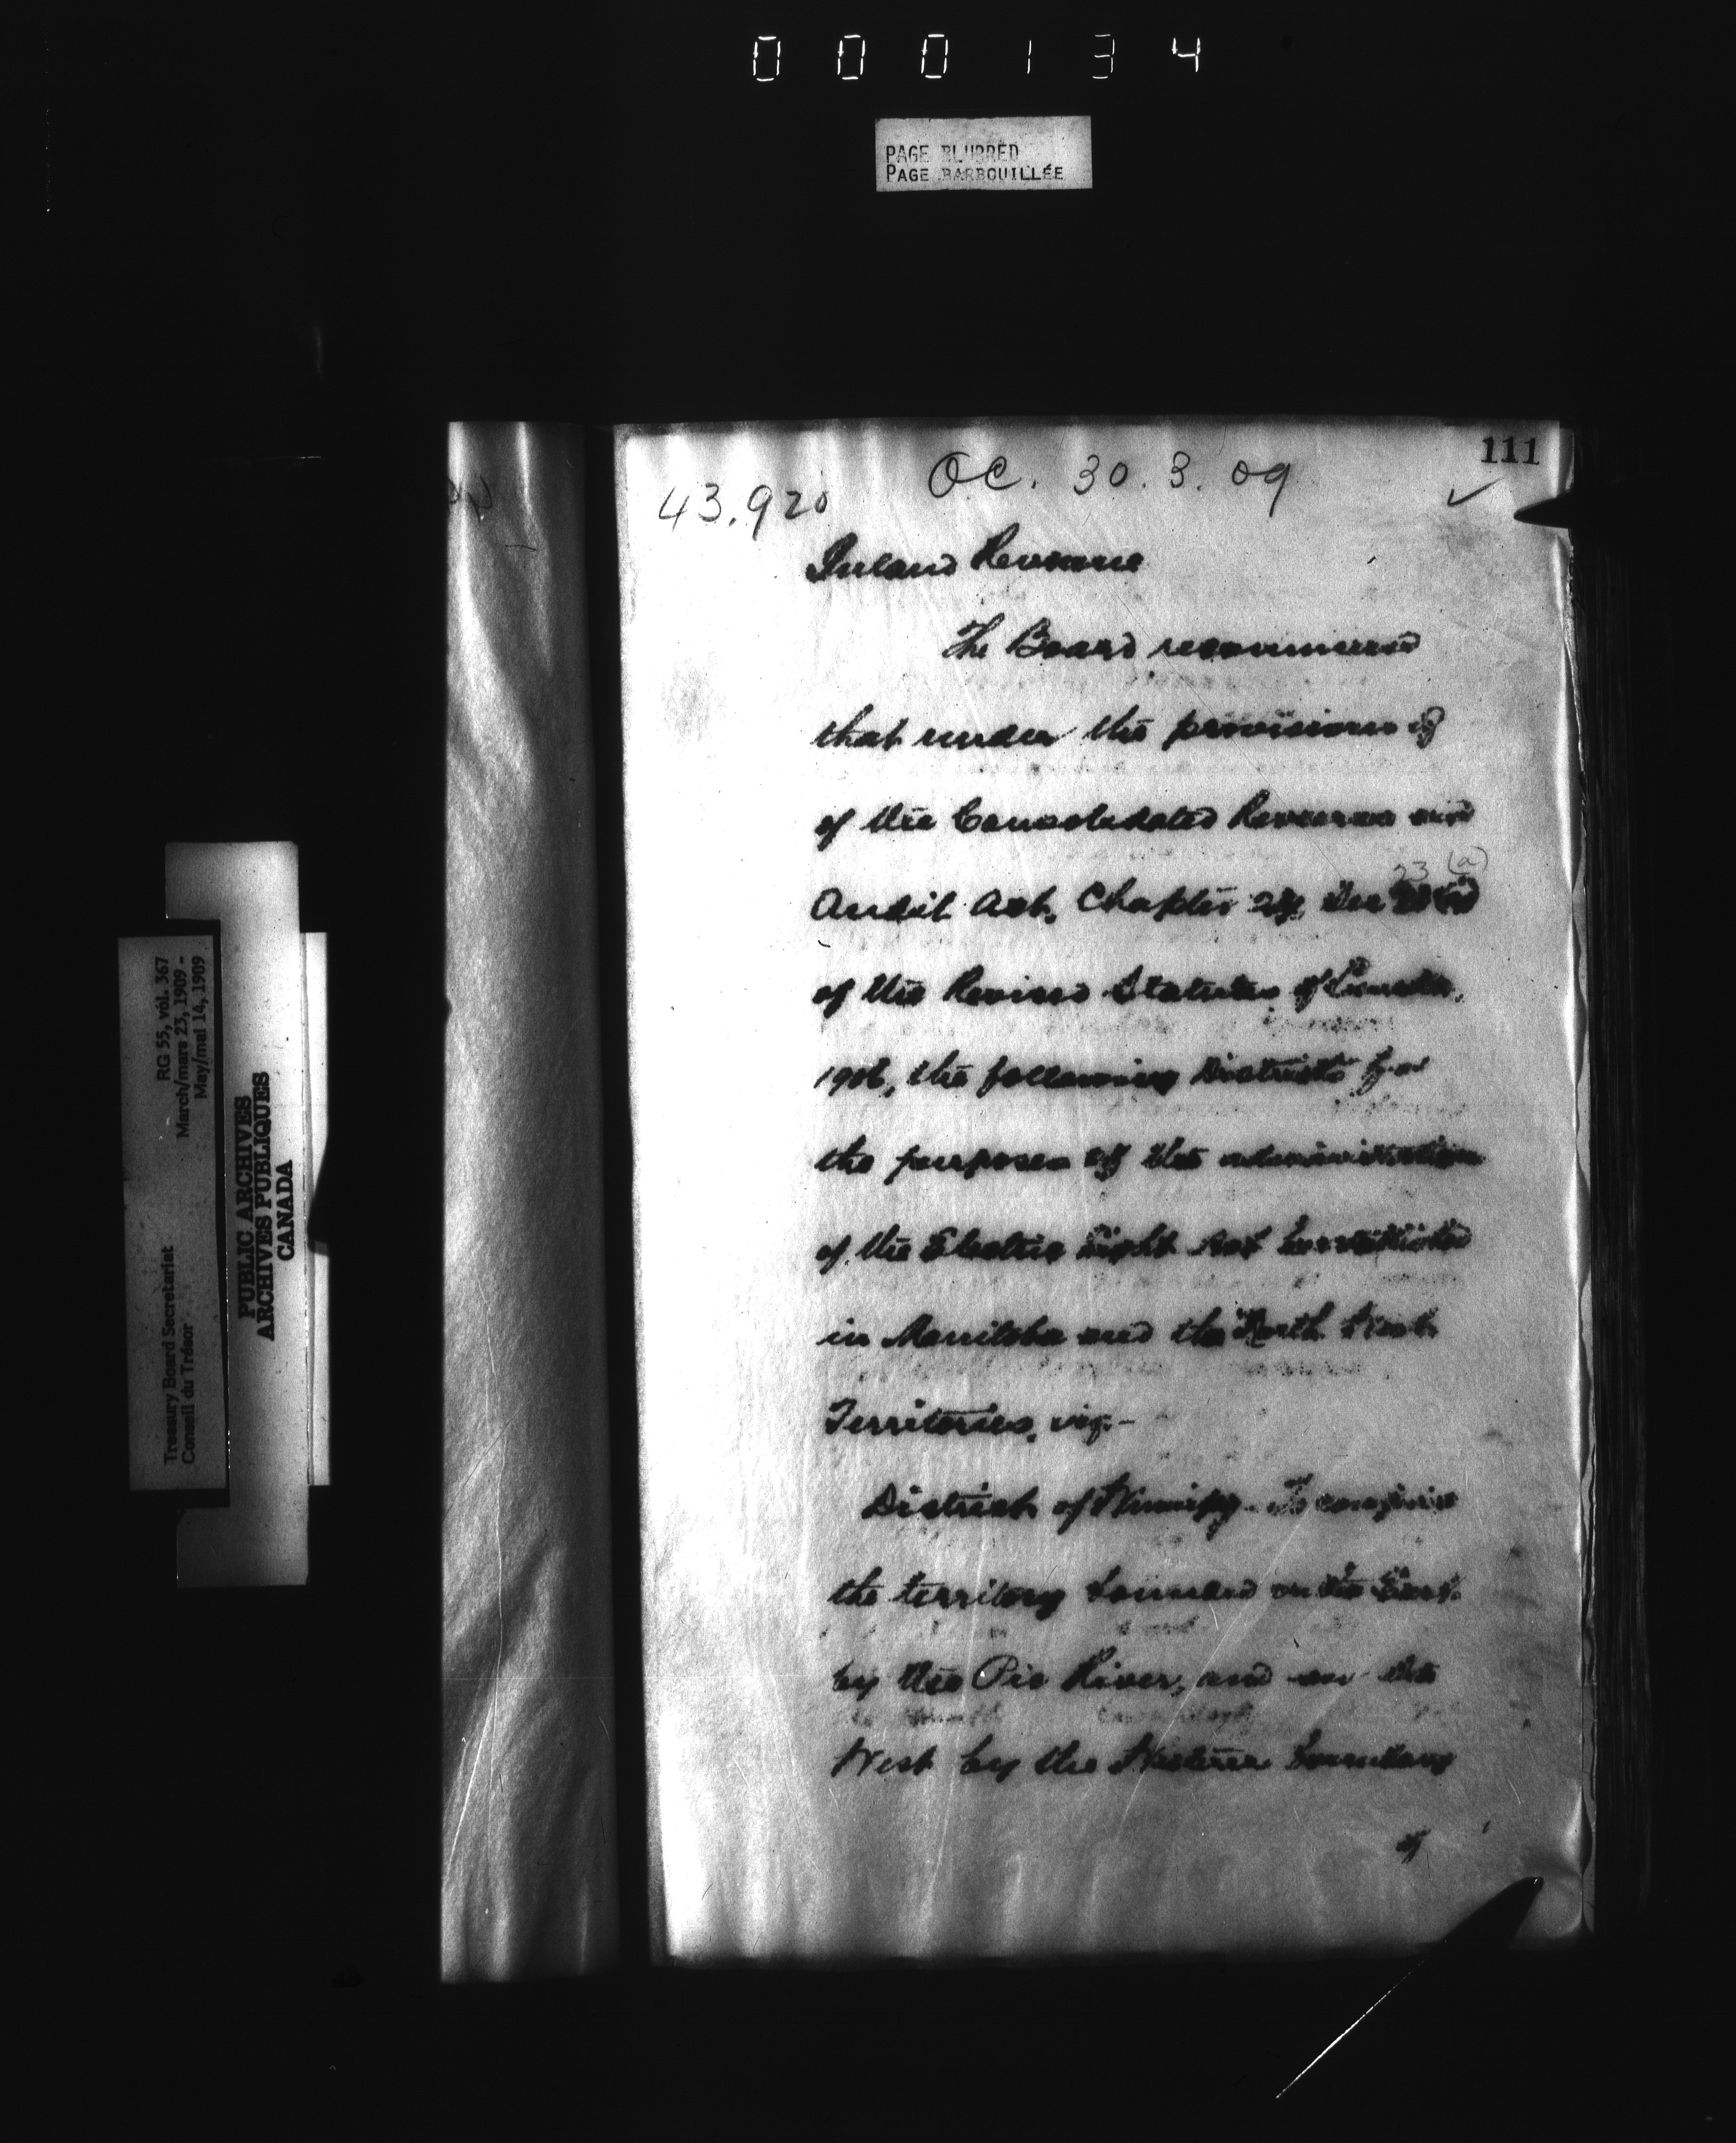 000134
PAGE BLURRED
PAGE BARBOUILLÉE
111
OC. 30.3.09
43.920
Inland Revenue
The Board recommend
that under the provisions of
of the Consolidated Revenue and
23 (a)
Audit Act, Chapter 24, Sec
of the Revised Statutes of Canada,
1906, the following Districts for
the purposes of the administration
of the Electric Light Act
in Manitoba and the North West
Territories, viz:-
District of Winnipeg - To comprise
the territory bounded on the East
by the Pic River, and on the
West by the Western boundary
of
RG 55, vol. 367
March/mars 23, 1909 -
May/mai 14, 1909
Treasury Board Secretariat
Conseil du Trésor
PUBLIC ARCHIVES
ARCHIVES PUBLIQUES
CANADA